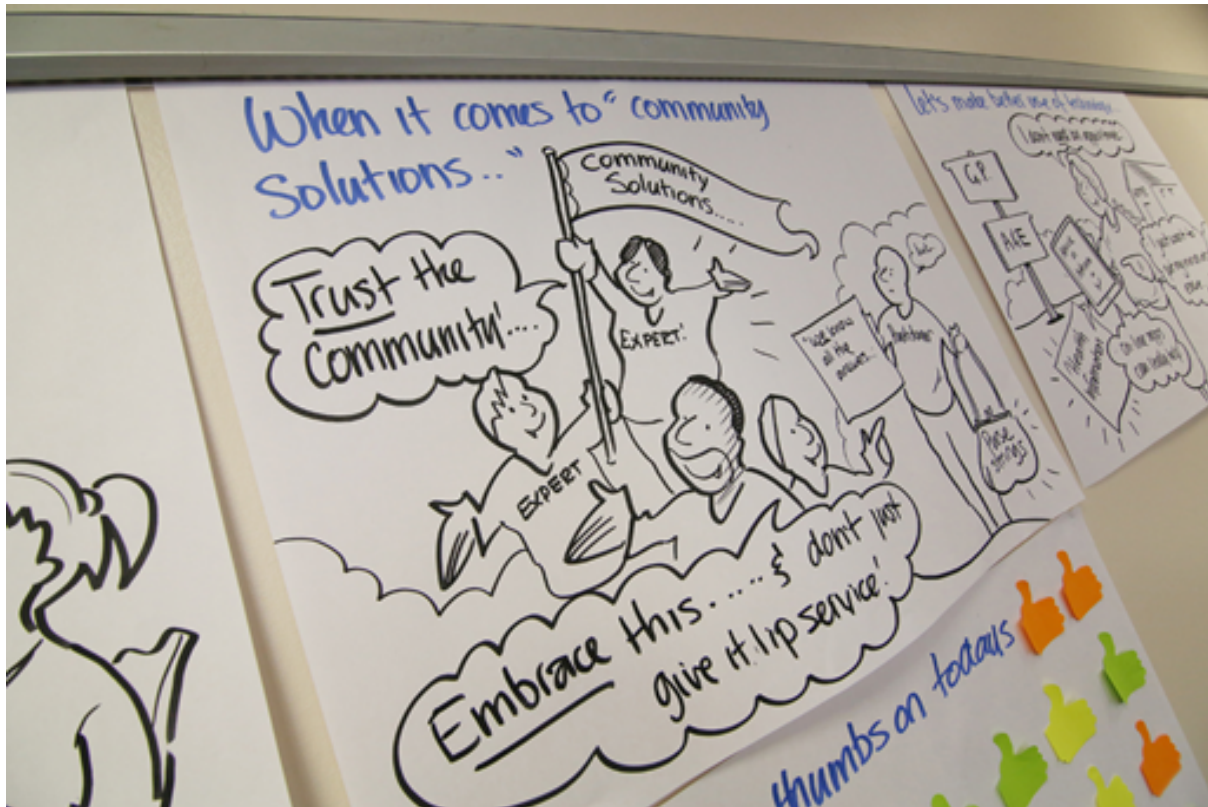 When it comes to "community
Solutions..."
Community
Solutions....
Trust the
community!....
EXPERT!
EXPERT
"We know
all the
answers...
but..
Purse
strings
Embrace this.....& don't just
give it lip service!
Let's make better use of technology...
I don't need an appointment
GP
A&E
Health
Information
thumbs on todays